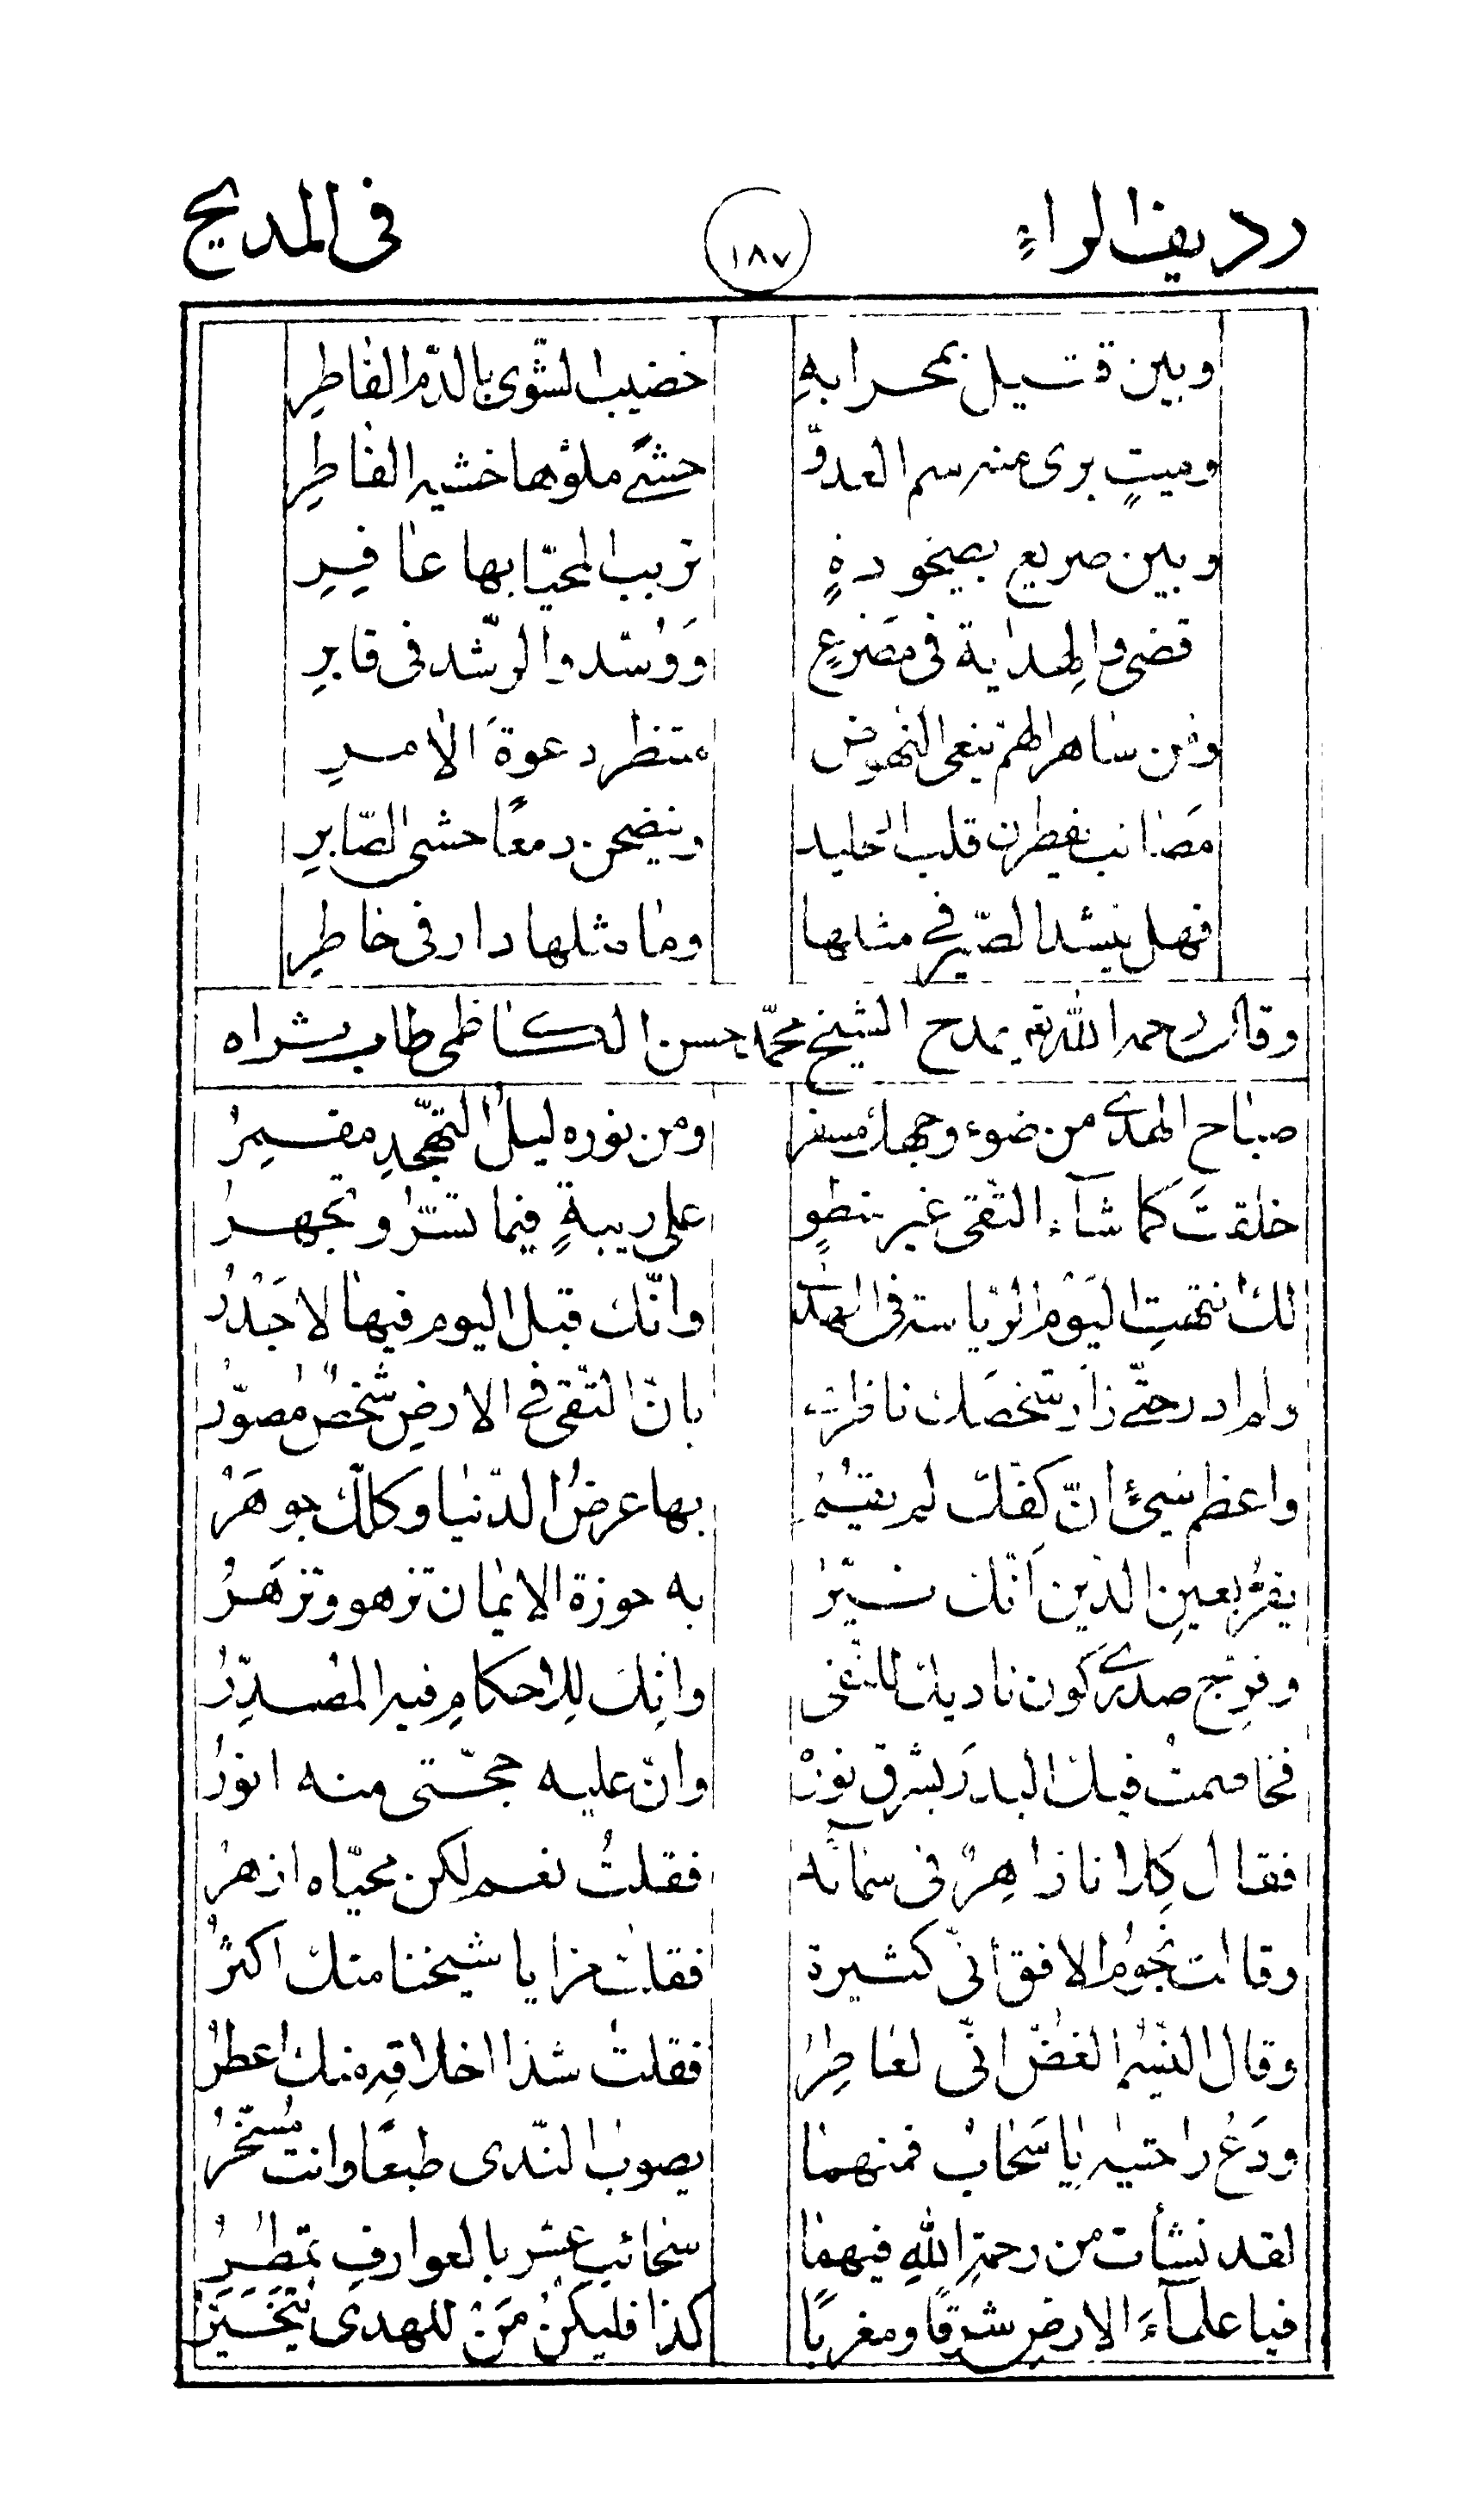 رديف الراء ١٨٧ فى المديح
وبين قتيل بمحرابهِ خضيب الشّوى بالدّم القاطرِ
وميتٍ برى عنه سم العدوّ حشىً ملؤها خشيه الفاطرِ
وبين صريع بصيخودةٍ تريب المحيّا بها عافرِ
قضى والهداية فى مصرعٍ ووُسّد والرّشد فى قابرِ
ومن ساهر الهمّ يبغى النهوض منتظر دعوة الامرِ
مصائب يفطرن قلب الجليد وينضحن دمعًا حشى الصّابرِ
فهل ينشد الصّبر فى مثلها وما مثلها دار فى خاطرِ
وقال رحمه الله يمدح الشيخ محمّد حسن الكاظمى طاب ثراه
صباح الهدى من ضوء وجهك مسفر ومن نوره ليل التهجّدِ مقمرُ
خلقتَ كما شآء التّقى غير منطوٍ على ريبةٍ فيما تسرّ وتجهر
لك انتهتِ اليَوْم الرّياسة فى الهدى وانّك قبل اليوم فيها لاجدرُ
ولم ادر حتّى زار شخصَك ناظرى بانّ التّقى فى الارضِ شخصٌ مصوّرُ
واعظم شىءٍ انّ كفّك لم يقم بها عرضُ الدّنيا وكلّك جوهَرُ
يقرّ بعينِ الدّين انّك نيّر به حوزة الايمان تزهو وتزهَرُ
وفرّج صدرى كون ناديك للتّقى وانّك للاحكامِ فيه المصدّرُ
فخاصمت فيك البدرَ يشرق نوره وانّ عليه حجّتى منه انورُ
فقال كلانا زاهرٌ فى سمآئه فقلتُ نعم لكن محيّاه ازهرُ
وقالت نجوم الافق انّى كثيرة فقلت مزايا شيخنا منك اكثرُ
وقال النّسيم الغضّ انّى لعاطر فقلت شذا اخلاقه منك اعطرُ
ودَعْ راحتيه يا سَحابُ فمنهما يصوب النّدى طبعًا وانت مُسخّرُ
لقد نشأت من رحمةِ اللهِ فيهما سحائب عشر بالعوارفِ تمطرُ
فيا علمآءَ الارض شرقًا ومغربًا كذا فليكنْ مَنْ للهدى يتخيّرُ